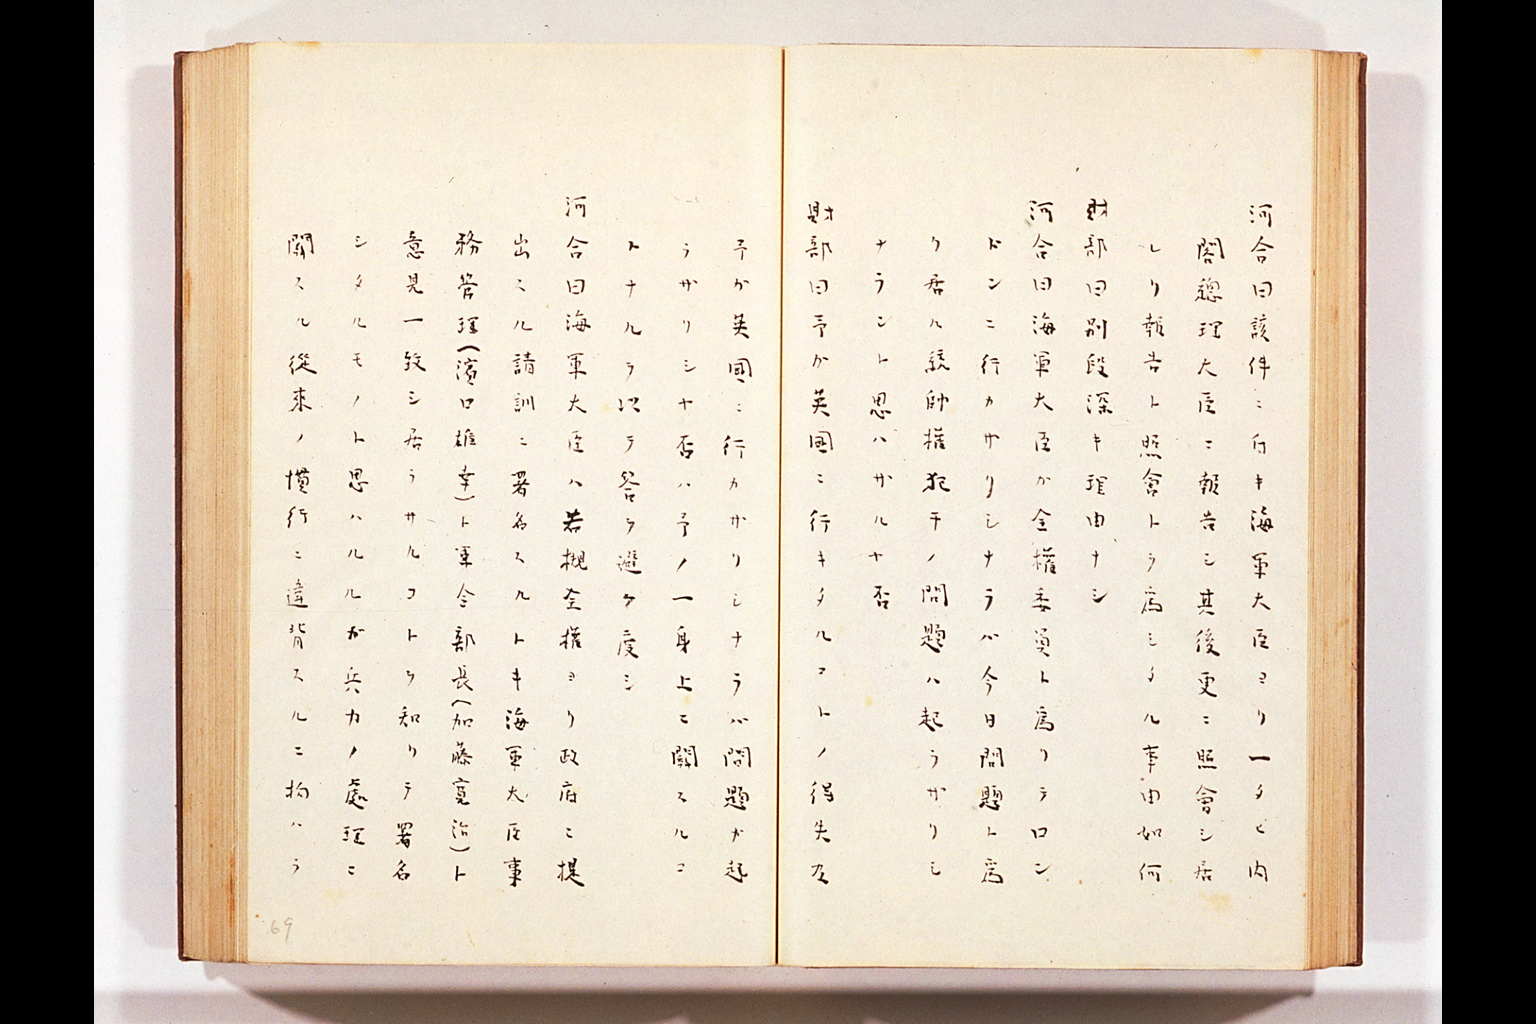 河合曰該件ニ付キ海軍大臣ヨリ一タビ内
閣總理大臣ニ報告シ其後更ニ照會シ居
レリ報告ト照會トヲ為シタル事由如何
財部曰別段深キ理由ナシ
河合曰海軍大臣カ全權委員ト為リテロン
ドンニ行カサリシナラバ今日問題ト為
リ居ル統帥權犯干ノ問題ハ起ラザリシ
ナラント思ハザルヤ否
財部曰予カ英國ニ行キタルコトノ得失及
予カ英國ニ行カザリシナラバ問題ガ起
ラザリシヤ否ハ予ノ一身上ニ關スルコ
トナルヲ以テ答ヲ避ケ度シ
河合曰海軍大臣ハ若槻全權ヨリ政府ニ提
出スル請訓ニ署名スルトキ海軍大臣事
務管理(濱口雄幸)ト軍令部長(加藤寛治)ト
意見一致シ居ラサルコトヲ知リテ署名
シタルモノト思ハルルガ兵力ノ處理ニ
關スル從來ノ慣行ニ違背スルニ拘ハラ
69